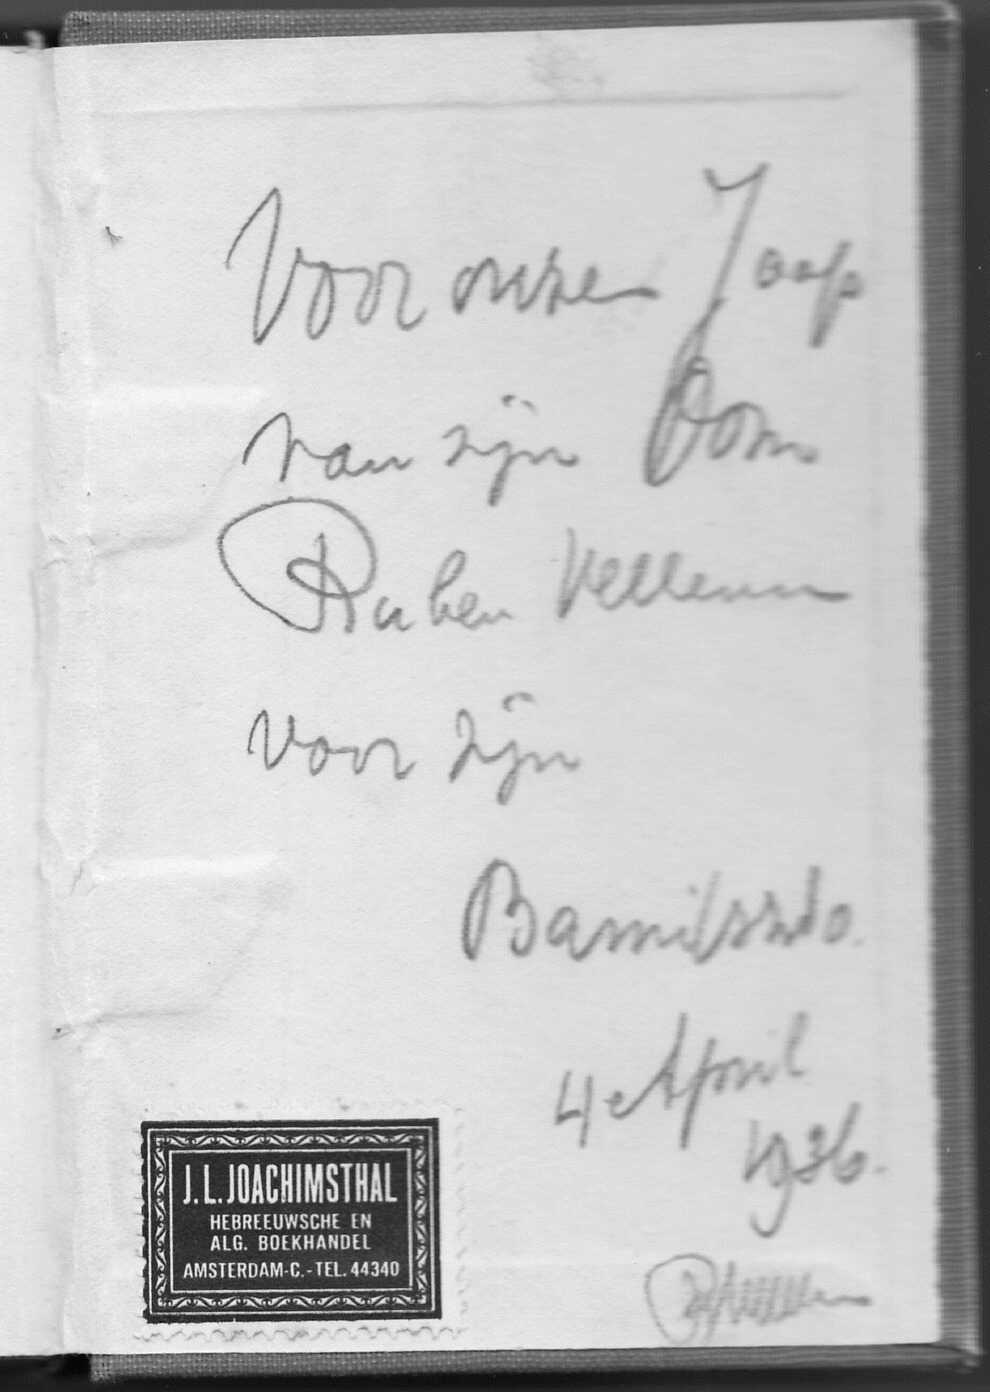 Voor onzen Jaap
van zijn Oom
Ruben Velleman
voor zijn
Barmitswo.
4e April
1936.
J. L. JOACHIMSTHAL
HEBREEUWSCHE EN
ALG. BOEKHANDEL
AMSTERDAM-C.-TEL. 44340